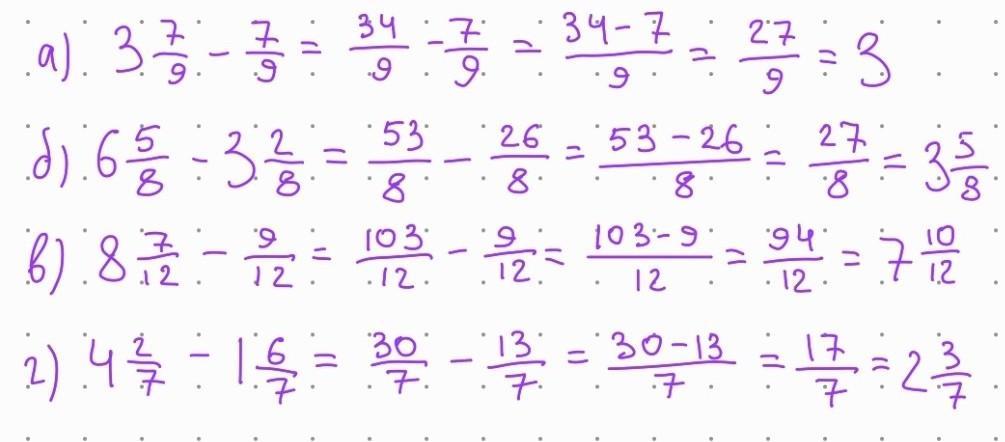 а) 3 7/9 - 7/9 = 34/9 - 7/9 = (34 - 7)/9 = 27/9 = 3
б) 6 5/8 - 3 2/8 = 53/8 - 26/8 = (53 - 26)/8 = 27/8 = 3 5/8
в) 8 7/12 - 9/12 = 103/12 - 9/12 = (103 - 9)/12 = 94/12 = 7 10/12
г) 4 2/7 - 1 6/7 = 30/7 - 13/7 = (30 - 13)/7 = 17/7 = 2 3/7